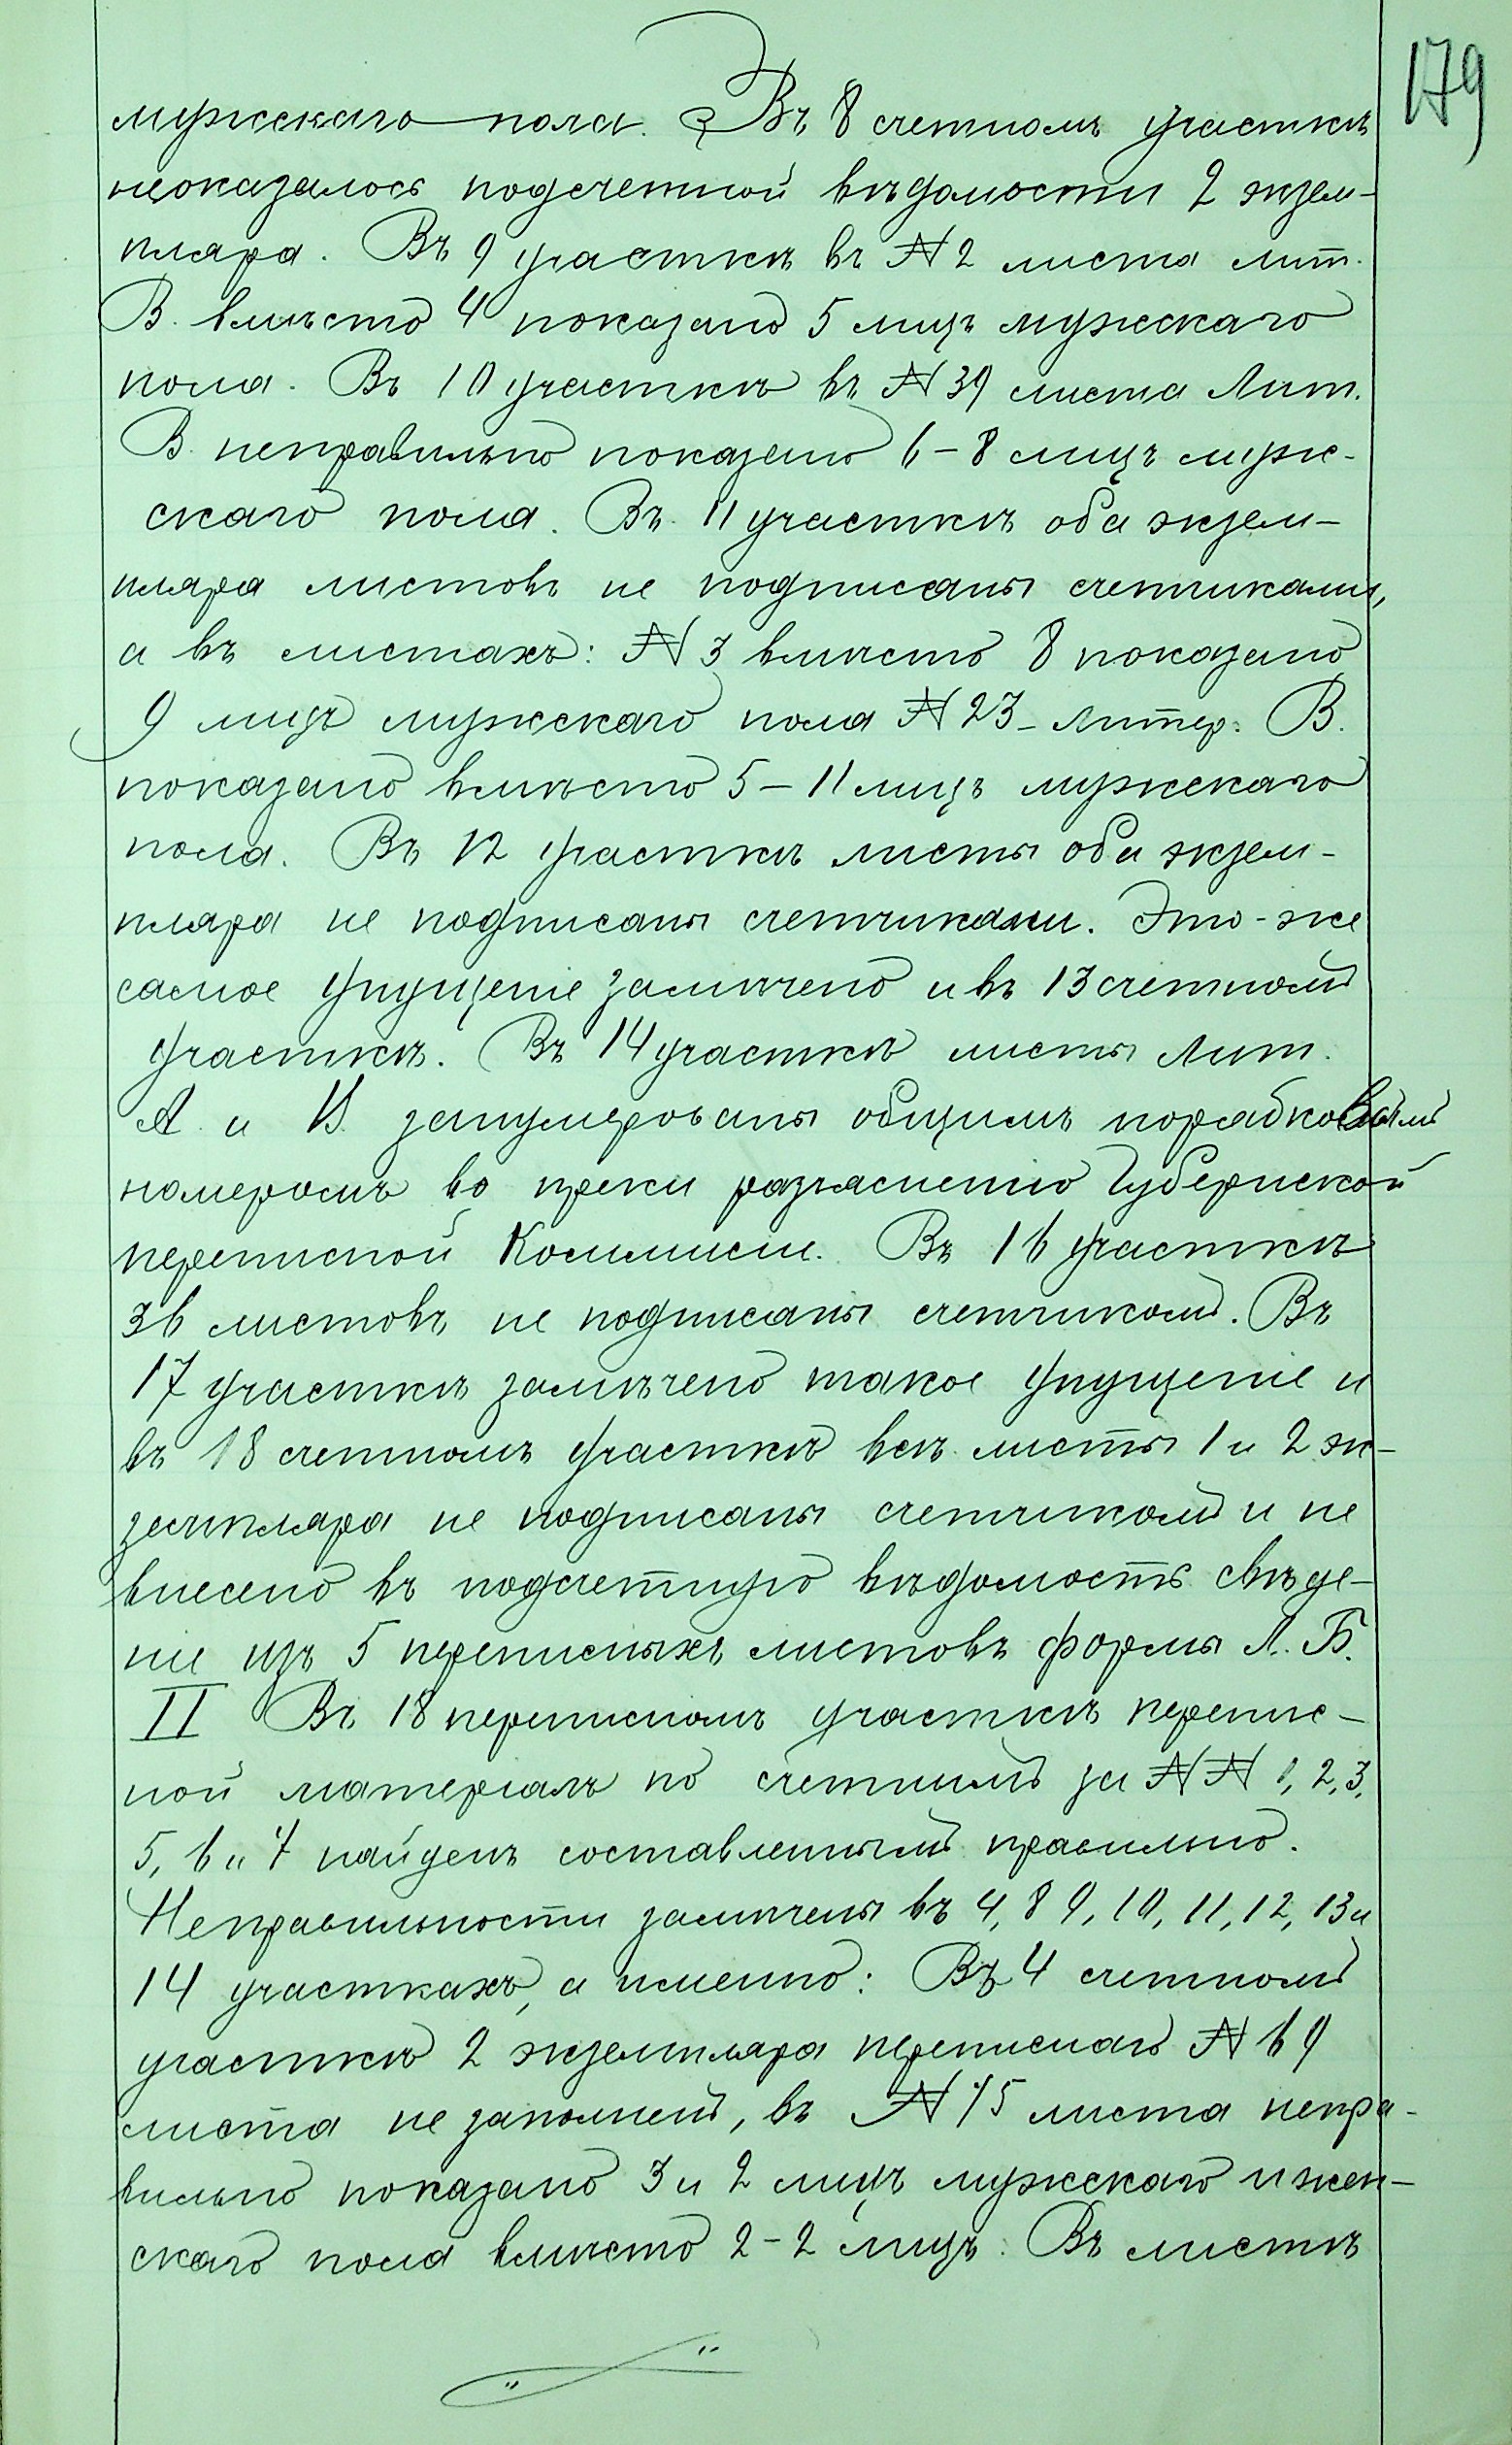 179
мужскаго пола. Въ 8 счетномъ участкѣ
неоказалось подсчетной вѣдомости 2 экзем-
пляра. Въ 9 участкѣ въ № 2 листа лит.
В. вмѣсто 4 показано 5 лицъ мужскаго
пола. Въ 10 участкѣ въ № 39 листа Лит.
В. неправильно показано 6-8 лицъ муж-
скаго пола. Въ 11 участкѣ оба экзем-
пляра листовъ не подписаны счетчиками,
а въ листахъ: № 3 вмѣсто 8 показано
9 лицъ мужскаго пола № 23 - литер. В.
показано вмѣсто 5 - 11 лицъ мужскаго
пола. Въ 12 участкѣ листы оба экзем-
пляра не подписаны счетчиками. Это-же
самое упущеніе замѣчено и въ 13 счетномъ
участкѣ. Въ 14 участкѣ листы Лит.
А. и В. занумерованы общимъ порядковымъ
номеромъ во преки разъясненію Губернской
переписной Коммисіи. Въ 16 участкѣ
36 листовъ не подписаны счетчикомъ. Въ
17 участкѣ замѣчено такое упущеніе и
въ 18 счетномъ участкѣ всѣ листы 1 и 2 эк-
земпляра не подписаны счетчикомъ и не
внесено въ подсчетную вѣдомость свѣде-
ніе изъ 5 переписныхъ листовъ формы Л. Б.
II Въ 18 переписномъ участкѣ перепис-
ной матеріалъ по счетнымъ за №№ 1, 2, 3,
5, 6 и 7 найденъ составленнымъ правильно.
Неправильности замѣчены въ 4, 8 9, 10, 11, 12, 13 и
14 участкахъ, а именно: Въ 4 счетномъ
участкѣ 2 экземпляра переписнаго № 69
листа не заполненъ, въ № 75 листа непра-
вильно показано 3 и 2 лицъ мужскаго и жен-
скаго пола вмѣсто 2-2 лицъ. Въ листѣ